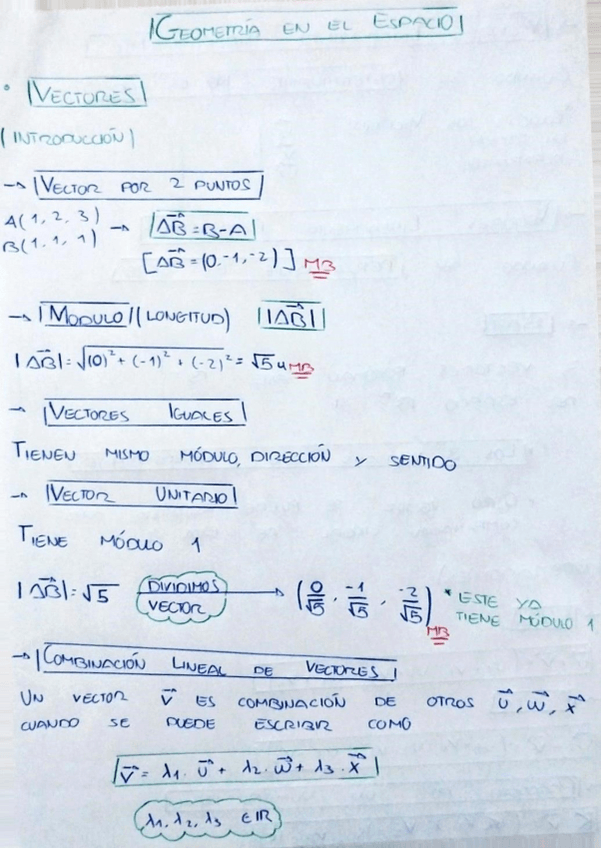 GEOMETRÍA EN EL ESPACIO
• VECTORES
(INTRODUCCIÓN)
→ VECTOR POR 2 PUNTOS
A(1,2,3)
B(1,1,1) → AB = B-A
[AB = (0,-1,-2)] MB
→ MODULO (LONGITUD) |AB|
|AB| = √(0)² + (-1)² + (-2)² = √5 u MB
→ VECTORES IGUALES
TIENEN MISMO MÓDULO, DIRECCIÓN Y SENTIDO
→ VECTOR UNITARIO
TIENE MÓDULO 1
|AB| = √5 DIVIDIMOS VECTOR → (0/√5, -1/√5, -2/√5) MB * ESTE YA TIENE MÓDULO 1
→ COMBINACIÓN LINEAL DE VECTORES
UN VECTOR v⃗ ES COMBINACIÓN DE OTROS u⃗, w⃗, x⃗
CUANDO SE PUEDE ESCRIBIR COMO
v⃗ = λ1 · u⃗ + λ2 · w⃗ + λ3 · x⃗
λ1, λ2, λ3 ∈ IR